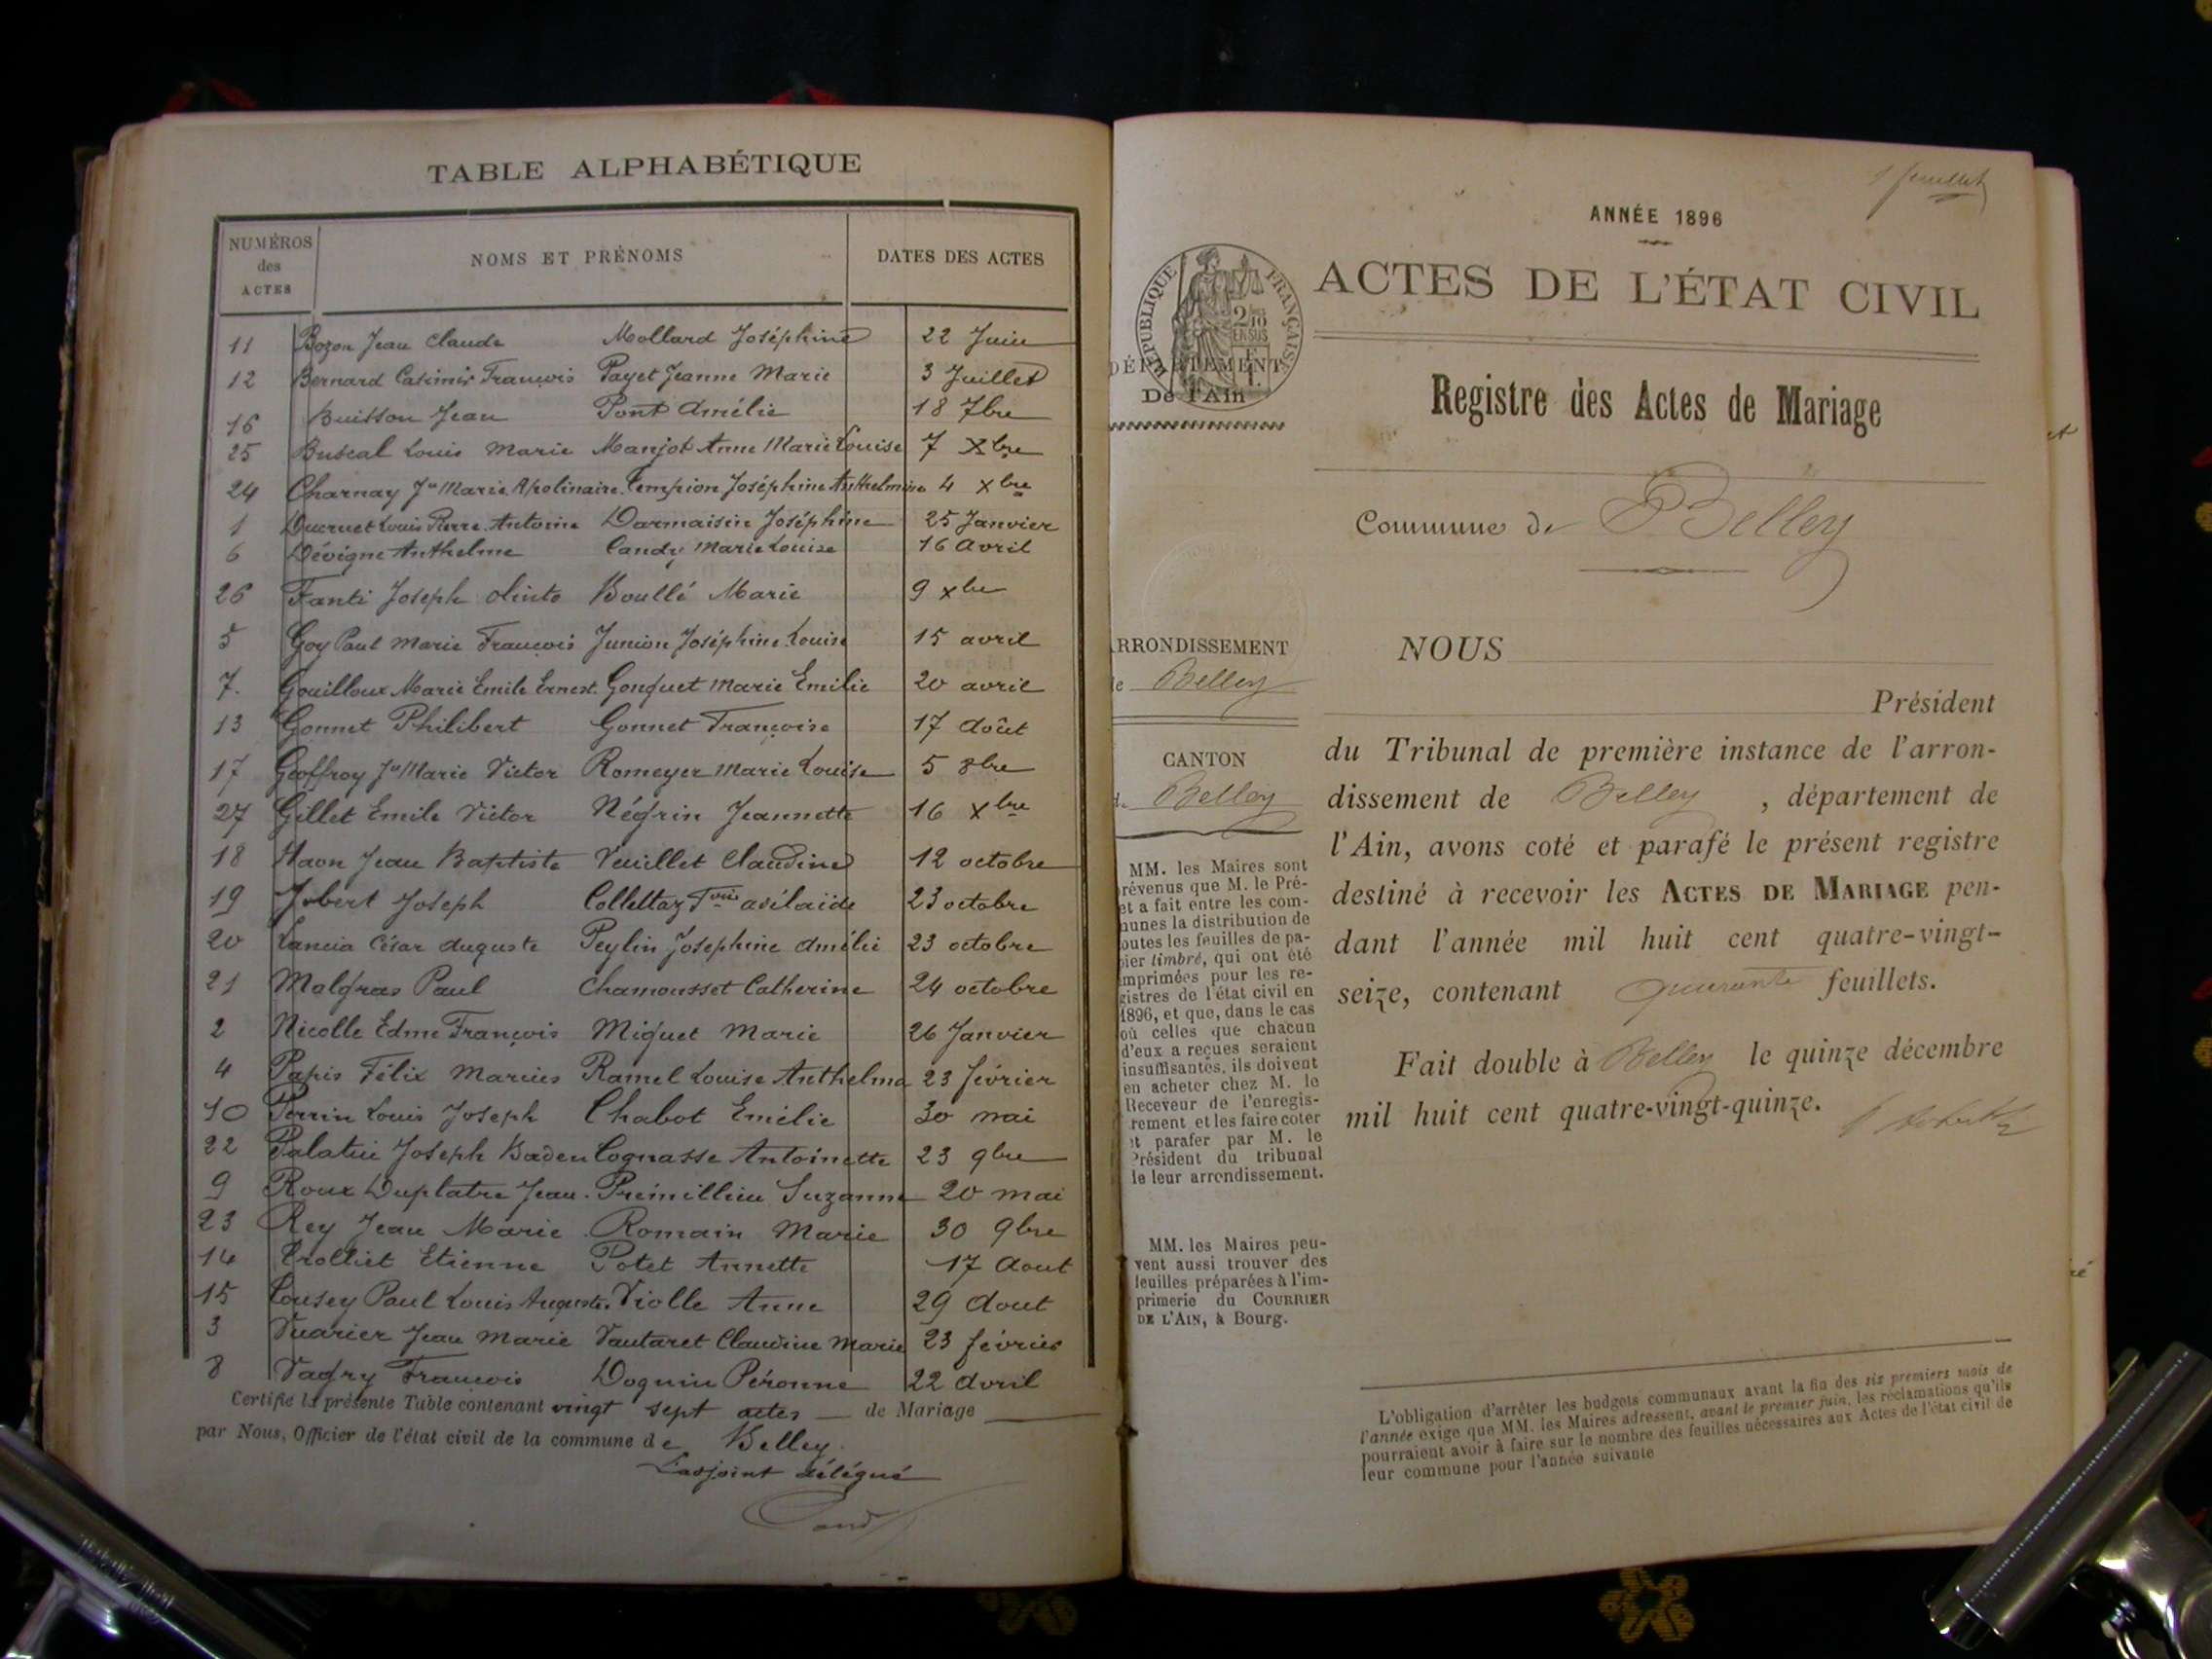 TABLE ALPHABÉTIQUE
NUMÉROS des ACTES NOMS ET PRÉNOMS DATES DES ACTES
11 Bozon Jean Claude Mollard Joséphine 22 Juin
12 Bernard Casimir François Payet Jeanne Marie 3 Juillet
16 Buisson Jean Pont Amélie 18 7bre
25 Buscal Louis Marie Manjot Anne Marie Louise 7 Xbre
24 Charnay Jn Marie Apolinaire Tempion Joséphine Anthelmine 4 Xbre
1 Ducruet Louis Pierre Antoine Darmaisin Joséphine 25 Janvier
6 Dévigne Anthelme Candy Marie Louise 16 Avril
26 Fanti Joseph Olinto Boullé Marie 9 xbre
5 Goy Paul Marie François Junion Joséphine Louise 15 avril
7. Gouilloux Marie Emile Ernest. Gonguet Marie Emilie 20 avril
13 Gonnet Philibert Gonnet Françoise 17 Août
17 Geoffroy Jn Marie Victor Romeyer Marie Louise 5 8bre
27 Gillet Emile Victor Négrin Jeannette 16 Xbre
18 Havon Jean Baptiste Veuillet Claudine 12 octobre
19 Jobert Joseph Collettaz Foise adélaïde 23 octobre
20 Lancia César Auguste Peylin Josephine Amélie 23 octobre
21 Malgras Paul Chamousset Catherine 24 octobre
2 Nicolle Edme François Miguet Marie 26 Janvier
4 Papis Félix Marius Ramel Louise Anthelma 23 février
10 Perrin Louis Joseph Chabot Emélie 30 mai
22 Palatin Joseph Baden Cognasse Antoinette 23 9bre
9 Roux Duplatre Jean. Prémillieu Suzanne 20 mai
23 Rey Jean Marie Romain Marie 30 9bre
14 Trolliet Etienne Potet Annette 17 Aout
15 Tousey Paul Louis Auguste. Violle Anne 29 Aout
3 Vuarier Jean Marie Vautaret Claudine Marie 23 février
8 Vagry François Doguin Péronne 22 Avril
Certifie la présente Table contenant vingt sept actes de Mariage
par Nous, Officier de l'état civil de la commune de Belley.
L'adjoint délégué
1 feuillet
ANNÉE 1896
ACTES DE L'ÉTAT CIVIL
RÉPUBLIQUE FRANÇAISE
2/10 EN SUS
DÉPARTEMENT
De l'Ain
Registre des Actes de Mariage
Commune de Belley
ARRONDISSEMENT
de Belley
CANTON
de Belley
NOUS
Président
du Tribunal de première instance de l'arron-
dissement de Belley, département de
l'Ain, avons coté et parafé le présent registre
destiné à recevoir les ACTES DE MARIAGE pen-
dant l'année mil huit cent quatre-vingt-
seize, contenant quarante feuillets.
Fait double à Belley le quinze décembre
mil huit cent quatre-vingt-quinze.
MM. les Maires sont
révenus que M. le Pré-
et a fait entre les com-
munes la distribution de
outes les feuilles de pa-
pier timbré, qui ont été
imprimées pour les re-
gistres de l'état civil en
1896, et que, dans le cas
où celles que chacun
d'eux a reçues seraient
insuffisantes, ils doivent
en acheter chez M. le
Receveur de l'enregis-
trement et les faire coter
et parafer par M. le
Président du tribunal
de leur arrondissement.
MM. les Maires peu-
vent aussi trouver des
feuilles préparées à l'im-
primerie du COURRIER
DE L'AIN, à Bourg.
L'obligation d'arrêter les budgets communaux avant la fin des six premiers mois de
l'année exige que MM. les Maires adressent, avant le premier juin, les réclamations qu'ils
pourraient avoir à faire sur le nombre des feuilles nécessaires aux Actes de l'état civil de
leur commune pour l'année suivante